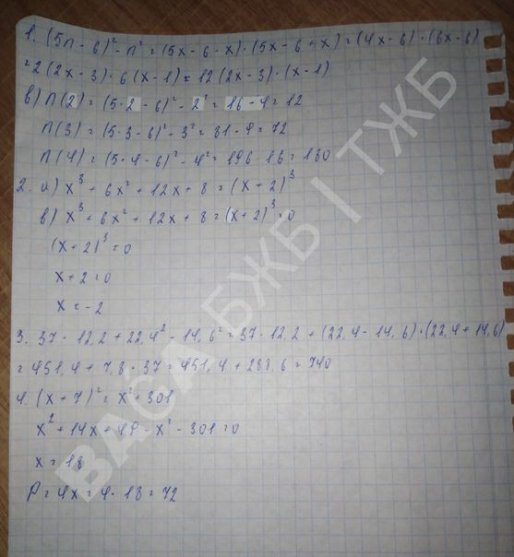 1. (5n - 6)² - n² = (5x - 6 - x) · (5x - 6 + x) = (4x - 6) · (6x - 6)
= 2(2x - 3) · 6(x - 1) = 12(2x - 3) · (x - 1)
b) n(2) = (5·2 - 6)² - 2² = 16 - 4 = 12
n(3) = (5·3 - 6)² - 3² = 81 - 9 = 72
n(4) = (5·4 - 6)² - 4² = 196 - 16 = 180
2. a) x³ + 6x² + 12x + 8 = (x + 2)³
b) x³ + 6x² + 12x + 8 = (x + 2)³ = 0
(x + 2)³ = 0
x + 2 = 0
x = -2
3. 37 · 12,2 + 22,4² - 14,6² = 37 · 12,2 + (22,4 - 14,6) · (22,4 + 14,6)
= 451,4 + 7,8 · 37 = 451,4 + 288,6 = 740
4. (x + 7)² = x² + 301
x² + 14x + 49 - x² - 301 = 0
x = 18
P = 4x = 4 · 18 = 72
BAĞA БЖБ | ТЖБ